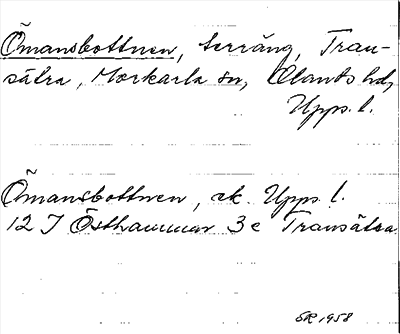 Ömansbottnen, terräng, Tran-
sätra, Morkarla sn, Olands hd,
Upps. l.
Ömansbottnen, ek. Upps. l.
12 I Östhammar 3 c Transätra
SR 1958